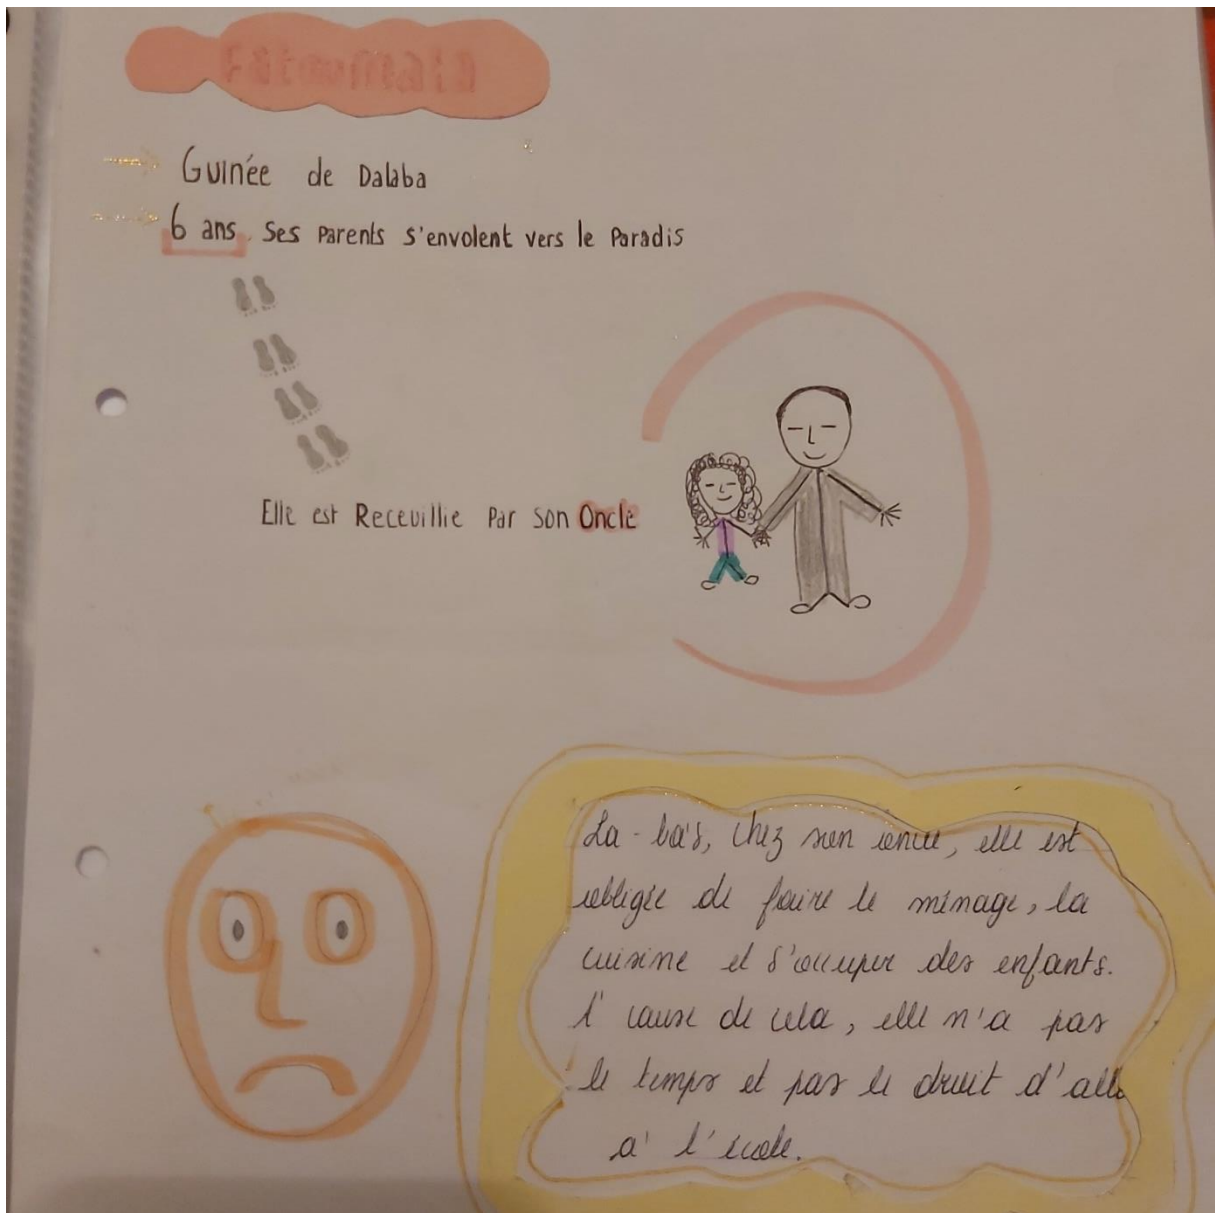 Fatoumata
Guinée de Dalaba
6 ans. Ses Parents s'envolent vers le Paradis
Elle est Receuillie Par son Oncle
La-bàs, chez son oncle, elle est
obligée de faire le ménage, la
cuisine et s'occuper des enfants.
À cause de cela, elle n'a pas
le temps et pas le droit d'alle
à l'école.